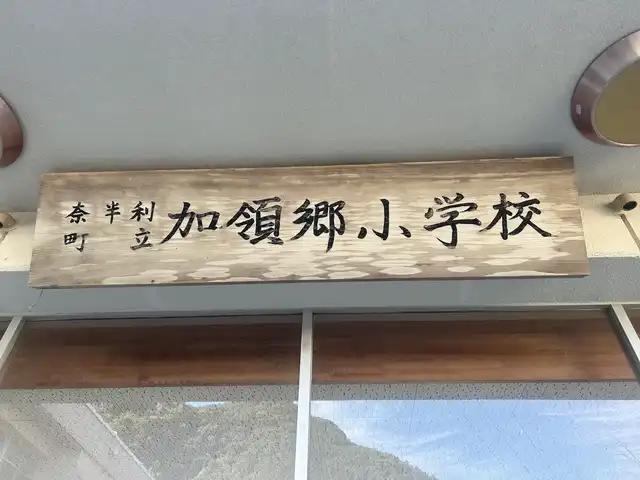 奈半利町立加領郷小学校